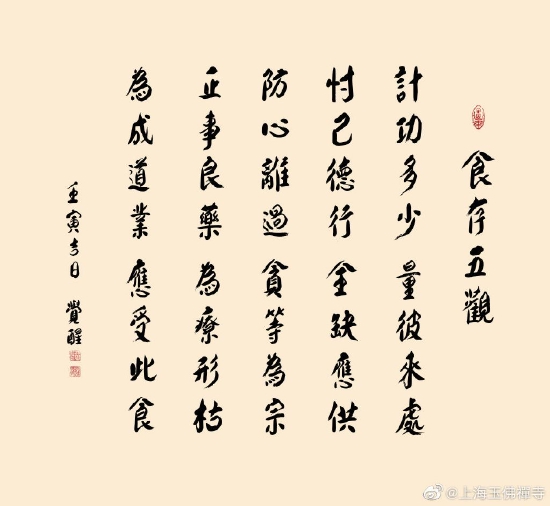 食存五觀
計功多少量彼来處
忖己德行全缺應供
防心離過貪等為宗
正事良藥為療形枯
為成道業應受此食
壬寅吉日 覺醒
@上海玉佛禅寺